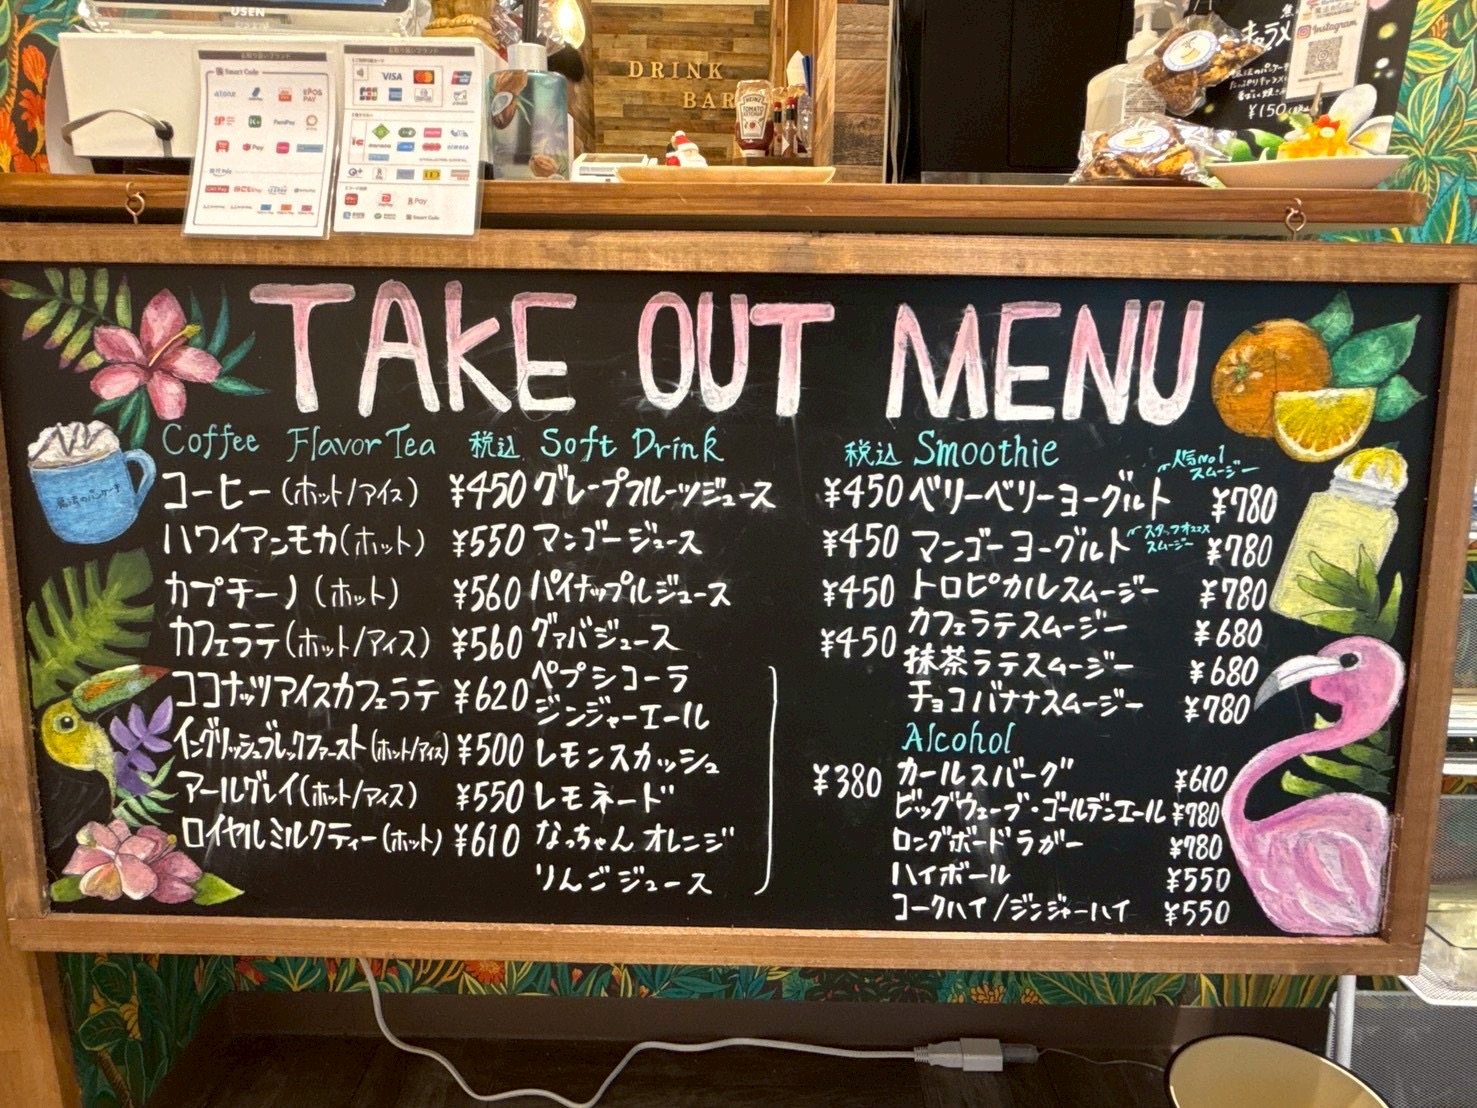 USEN
お取り扱いブランド
Smart Code
EPOS PAY
FamiPay
Pay
お取り扱いブランド
VISA
DRINK
BAR
HEINZ
TOMATO KETCHUP
Instagram
¥150
TAKE OUT MENU
魔法のパンケーキ
Coffee Flavor Tea 税込
コーヒー(ホット/アイス) ¥450
ハワイアンモカ(ホット) ¥550
カプチーノ(ホット) ¥560
カフェラテ(ホット/アイス) ¥560
ココナッツアイスカフェラテ ¥620
イングリッシュブレックファースト(ホット/アイス) ¥500
アールグレイ(ホット/アイス) ¥550
ロイヤルミルクティー(ホット) ¥610
Soft Drink 税込
グレープフルーツジュース ¥450
マンゴージュース ¥450
パイナップルジュース ¥450
グァバジュース ¥450
ペプシコーラ
ジンジャーエール
レモンスカッシュ
レモネード ¥380
なっちゃんオレンジ
りんごジュース
Smoothie
人気No1
スムージー
ベリーベリーヨーグルト ¥780
スタッフオススメ
スムージー
マンゴーヨーグルト ¥780
トロピカルスムージー ¥780
カフェラテスムージー ¥680
抹茶ラテスムージー ¥680
チョコバナナスムージー ¥780
Alcohol
カールスバーグ ¥610
ビッグウェーブ・ゴールデンエール ¥780
ロングボードラガー ¥780
ハイボール ¥550
コークハイ/ジンジャーハイ ¥550